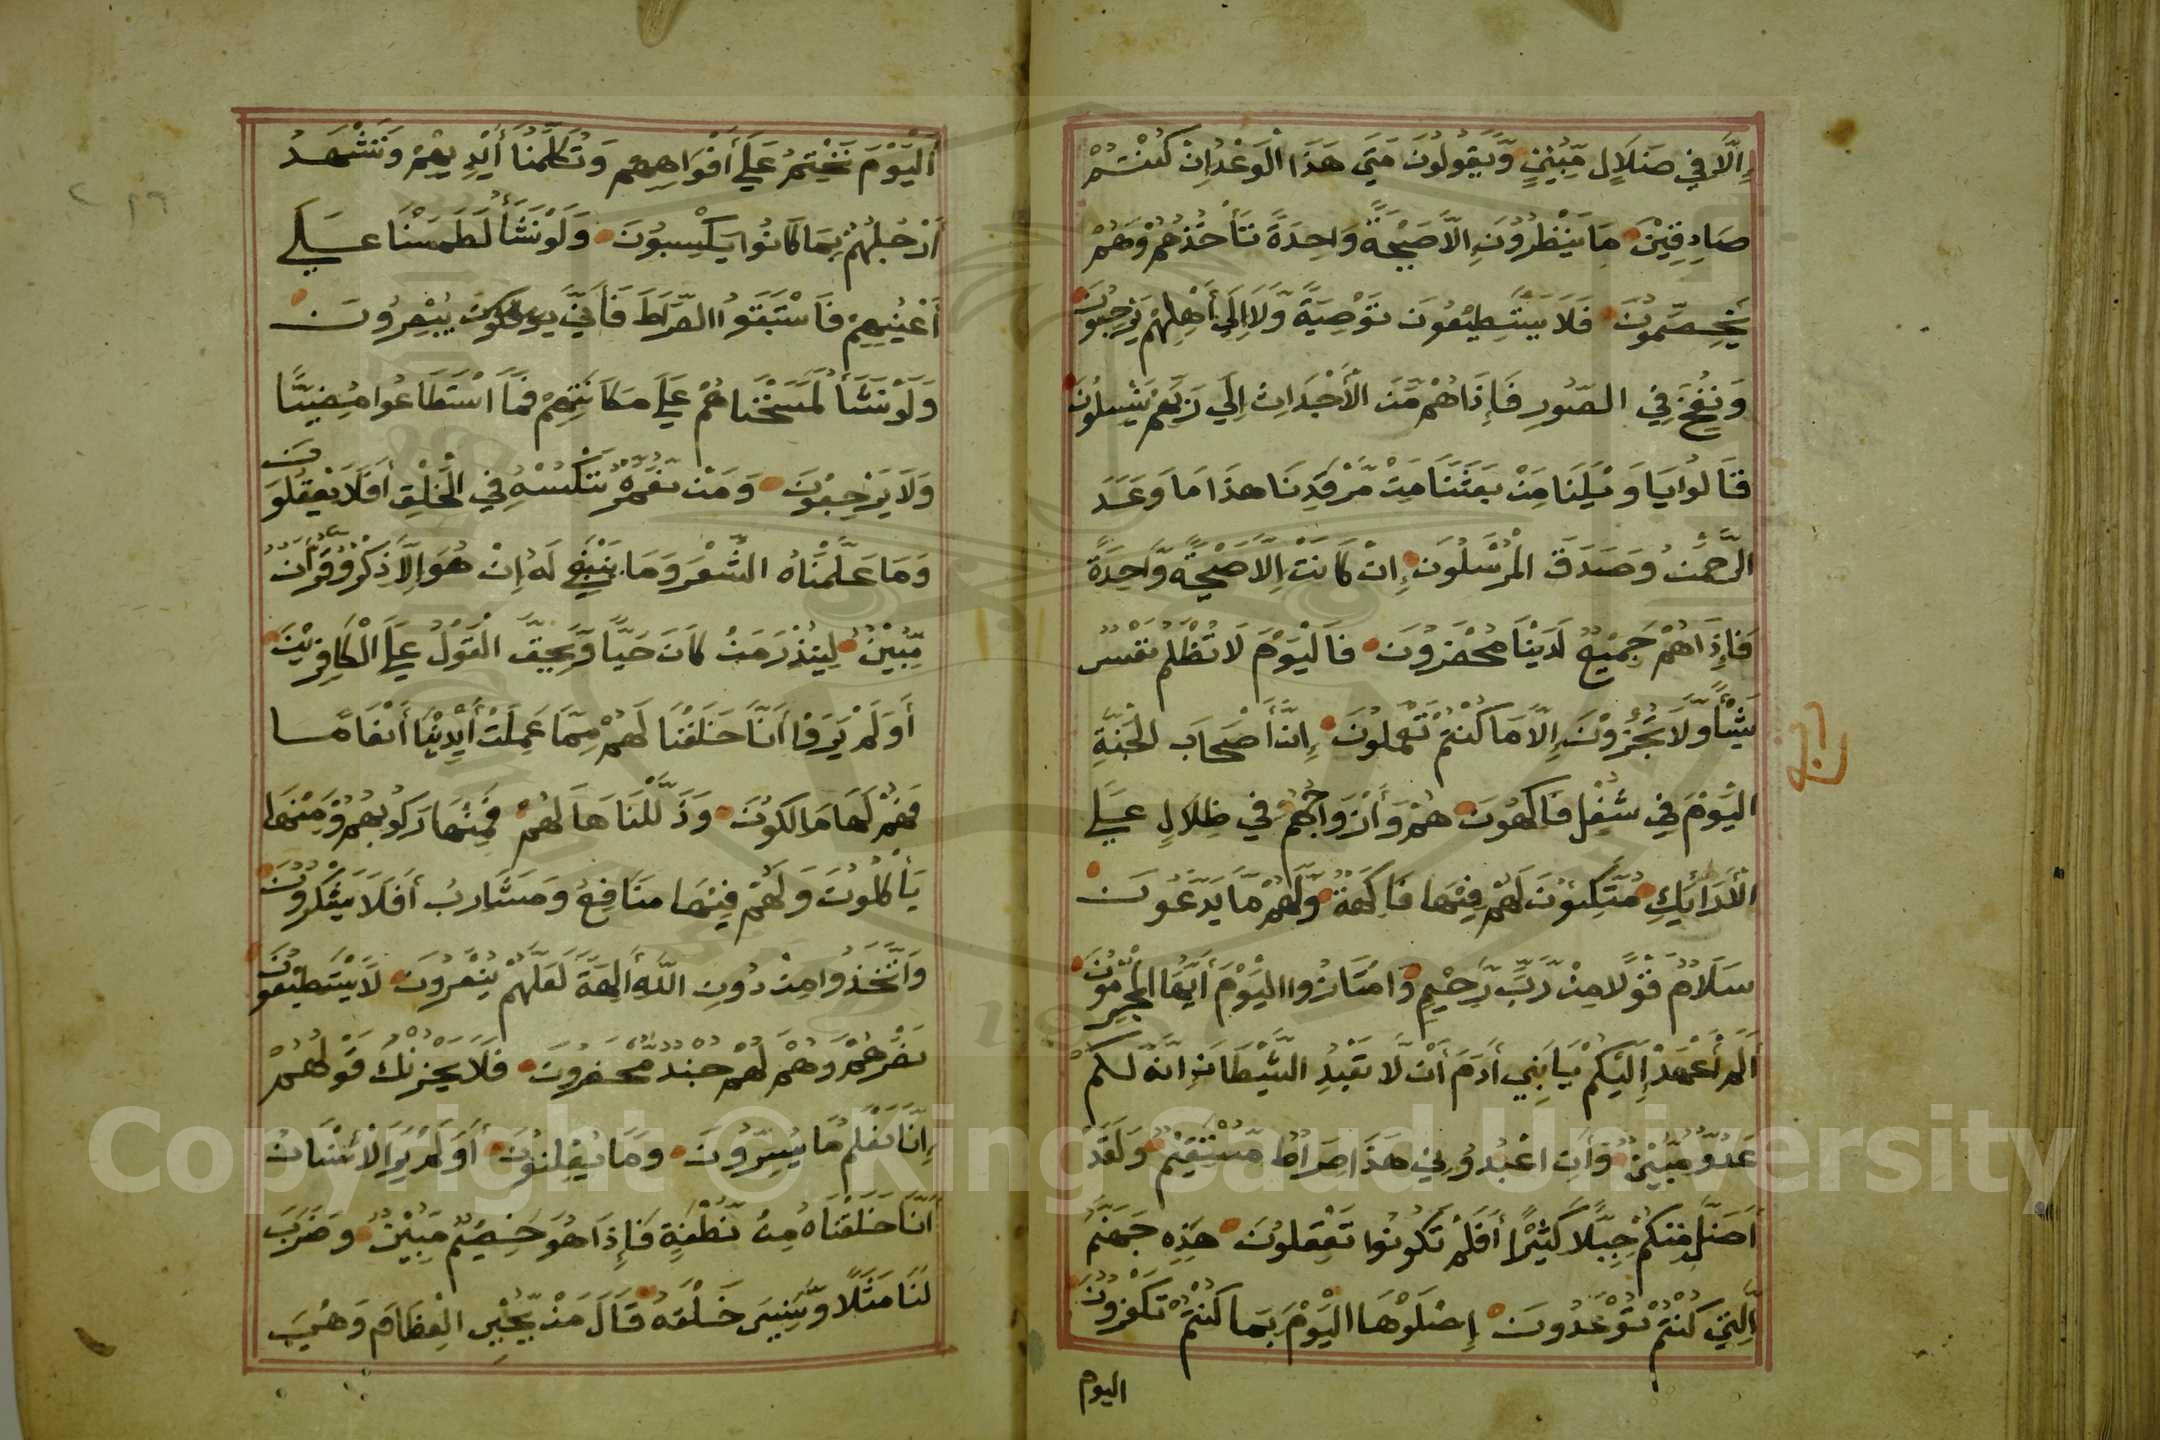 إِلَّا فِي ضَلَالٍ مُّبِيْنٍ وَّيَقُولُونَ مَتَى هَذَا الْوَعْدُ اِنْ كُنْتُمْ
صَادِقِيْنَ مَا يَنْظُرُوْنَ اِلَّا صَيْحَةً وَاحِدَةً تَأْخُذُهُمْ وَهُمْ
يَخِصِّمُوْنَ فَلَا يَسْتَطِيْعُوْنَ تَوْصِيَةً وَّلَا اِلَى أَهْلِهِمْ يَرْجِعُوْنَ
وَنُفِخَ فِي الصُّورِ فَإِذَا هُمْ مِّنَ الْأَجْدَاثِ اِلَى رَبِّهِمْ يَنْسِلُوْنَ
قَالُوْا يَا وَيْلَنَا مَنْ بَعَثَنَا مِنْ مَّرْقَدِنَا هَذَا مَا وَعَدَ
الرَّحْمٰنُ وَصَدَقَ الْمُرْسَلُوْنَ اِنْ كَانَتْ اِلَّا صَيْحَةً وَّاحِدَةً
فَإِذَا هُمْ جَمِيْعٌ لَدَيْنَا مُحْضَرُوْنَ فَالْيَوْمَ لَا تُظْلَمُ نَفْسٌ
شَيْأً وَّلَا تُجْزَوْنَ اِلَّا مَا كُنْتُمْ تَعْمَلُوْنَ اِنَّ أَصْحَابَ الْجَنَّةِ
الْيَوْمَ فِي شُغْلٍ فَاكِهُوْنَ هُمْ وَأَزْوَاجُهُمْ فِي ظِلَالٍ عَلَى
الْأَرَائِكِ مُتَّكِئُوْنَ لَهُمْ فِيْهَا فَاكِهَةٌ وَّلَهُمْ مَّا يَدَّعُوْنَ
سَلَامٌ قَوْلًا مِنْ رَّبٍّ رَّحِيْمٍ وَامْتَازُوا الْيَوْمَ أَيُّهَا الْمُجْرِمُوْنَ
أَلَمْ أَعْهَدْ إِلَيْكُمْ يَا بَنِي أَدَمَ أَنْ لَّا تَعْبُدُ الشَّيْطَانَ اِنَّهُ لَكُمْ
عَدُوٌّ مُّبِيْنٌ وَأَنِ اعْبُدُوْنِي هَذَا صِرَاطٌ مُّسْتَقِيْمٌ وَلَقَدْ
أَضَلَّ مِنْكُمْ جِبِلًّا كَثِيْرًا أَفَلَمْ تَكُوْنُوْا تَعْقِلُوْنَ هَذِهِ جَهَنَّمُ
الَّتِي كُنْتُمْ تُوْعَدُوْنَ إِصْلَوْهَا الْيَوْمَ بِمَا كُنْتُمْ تَكْفُرُوْنَ
اليوم
أَلْيَوْمَ نَخْتِمُ عَلَى أَفْوَاهِهِمْ وَتُكَلِّمُنَا أَيْدِيْهِمْ وَتَشْهَدُ
أَرْجُلُهُمْ بِمَا كَانُوْا يَكْسِبُوْنَ وَلَوْ نَشَأُ لَطَمَسْنَا عَلَى
أَعْيُنِهِمْ فَاسْتَبَقُوا الصِّرَاطَ فَأَنَّى يُبْصِرُوْنَ
وَلَوْ نَشَأُ لَمَسَخْنَاهُمْ عَلَى مَكَانَتِهِمْ فَمَا اسْتَطَاعُوا مُضِيًّا
وَلَا يَرْجِعُوْنَ وَمَنْ نُعَمِّرْهُ نُنَكِّسْهُ فِي الْخَلْقِ أَفَلَا يَعْقِلُوْنَ
وَمَا عَلَّمْنَاهُ الشِّعْرَ وَمَا يَنْبَغِي لَهُ إِنْ هُوَ اِلَّا ذِكْرٌ وَّقُرْأٰنٌ
مُّبِيْنٌ لِيُنْذِرَ مَنْ كَانَ حَيًّا وَّيَحِقَّ الْقَوْلُ عَلَى الْكَافِرِيْنَ
أَوَلَمْ يَرَوْا أَنَّا خَلَقْنَا لَهُمْ مِمَّا عَمِلَتْ أَيْدِيْنَا أَنْعَامًا
فَهُمْ لَهَا مَالِكُوْنَ وَذَلَّلْنَاهَا لَهُمْ فَمِنْهَا رَكُوْبُهُمْ وَمِنْهَا
يَأْكُلُوْنَ وَلَهُمْ فِيْهَا مَنَافِعُ وَمَشَارِبُ أَفَلَا يَشْكُرُوْنَ
وَاتَّخَذُوا مِنْ دُوْنِ اللهِ أَلِهَةً لَعَلَّهُمْ يُنْصَرُوْنَ لَا يَسْتَطِيْعُوْنَ
نَصْرَهُمْ وَهُمْ لَهُمْ جُنْدٌ مُّحْضَرُوْنَ فَلَا يَحْزُنْكَ قَوْلُهُمْ
إِنَّا نَعْلَمُ مَا يُسِرُّوْنَ وَمَا يُعْلِنُوْنَ أَوَلَمْ يَرَ الْاِنْسَانُ
أَنَّا خَلَقْنَاهُ مِنْ نُّطْفَةٍ فَإِذَا هُوَ خَصِيْمٌ مُبِيْنٌ وَضَرَبَ
لَنَا مَثَلًا وَّنَسِيَ خَلْقَهُ قَالَ مَنْ يُّحْيِي الْعِظَامَ وَهْيَ
Copyright © King Saud University